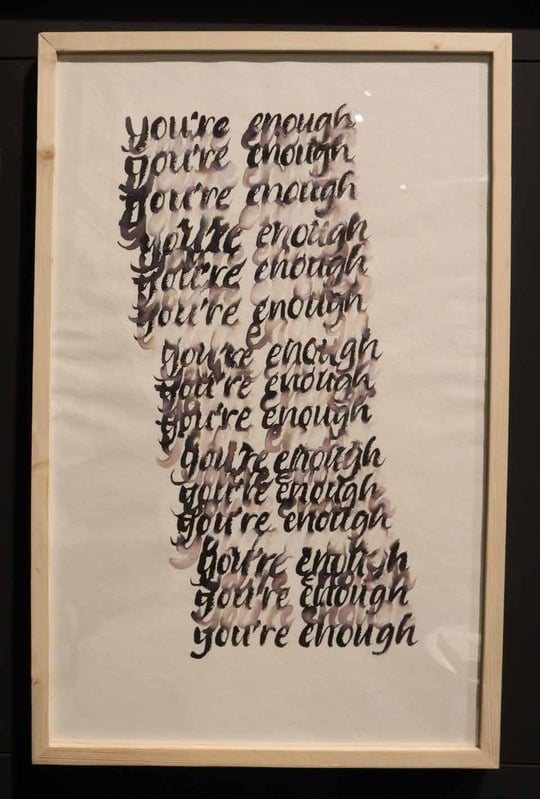 you're enough
you're enough
you're enough
you're enough
you're enough
you're enough
you're enough
you're enough
you're enough
you're enough
you're enough
you're enough
you're enough
you're enough
you're enough